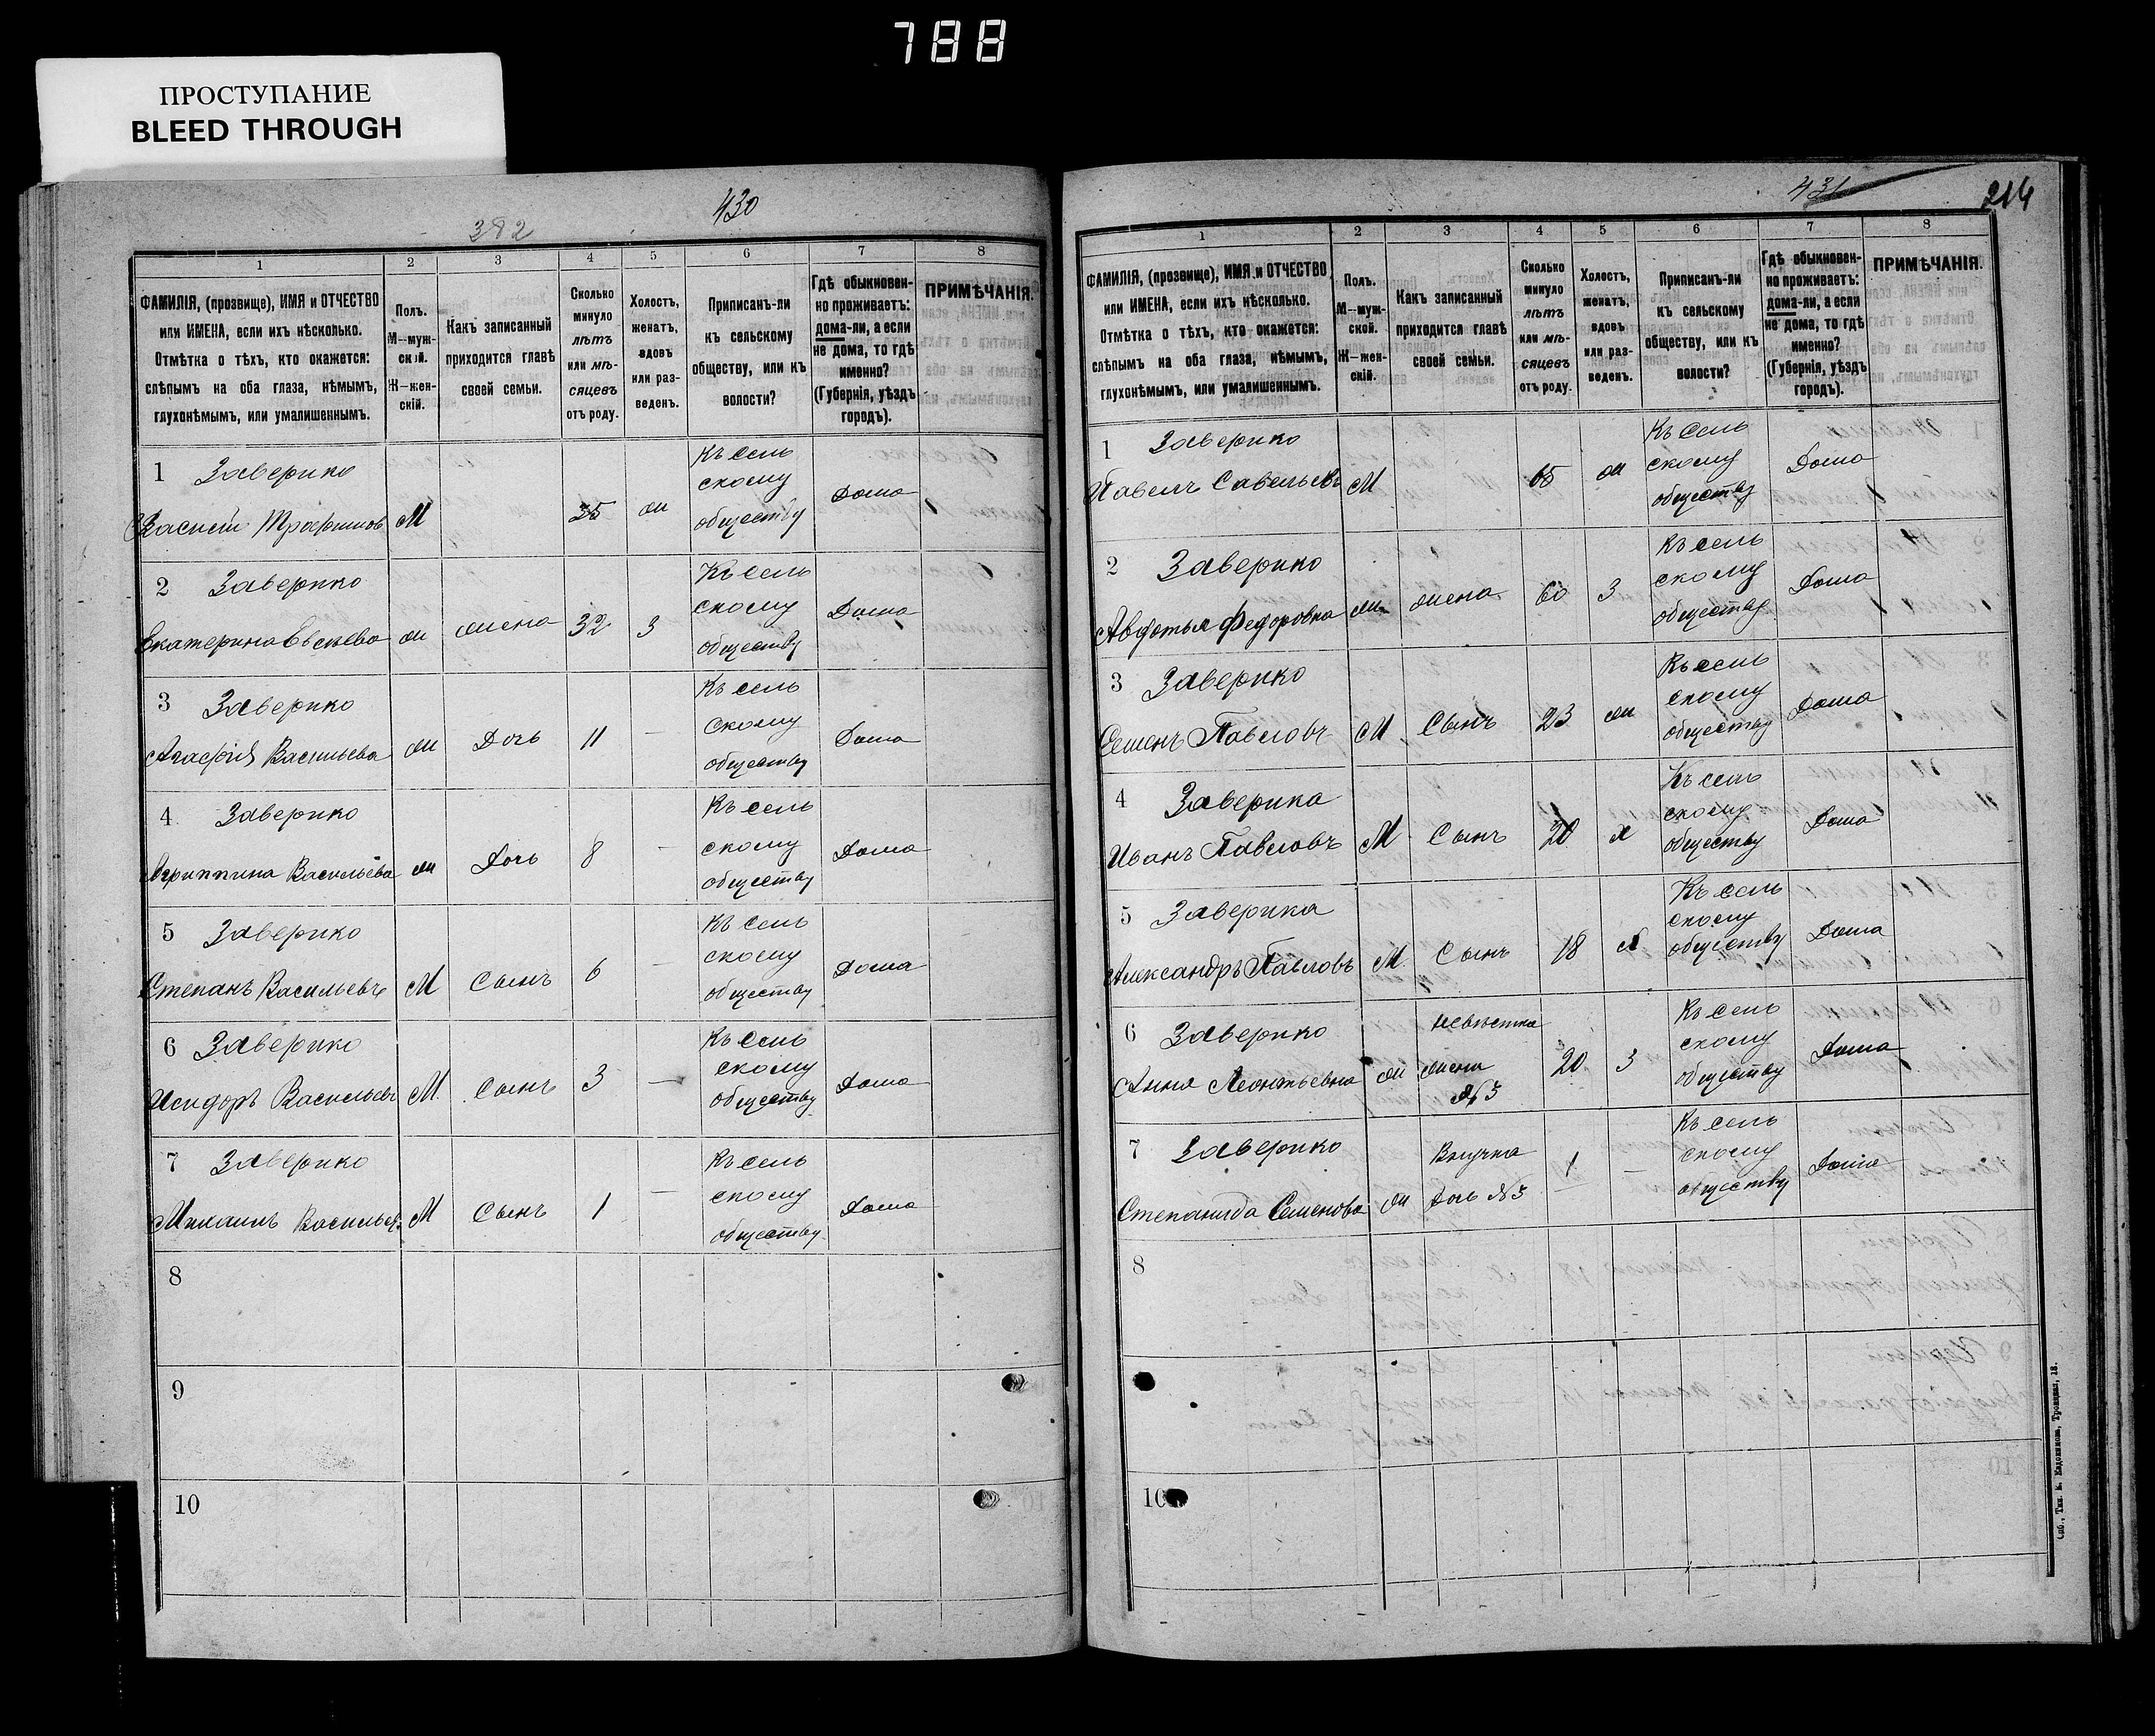 788
ПРОСТУПАНИЕ
BLEED THROUGH
430
382
1 2 3 4 5 6 7 8
ФАМИЛІЯ, (прозвище), ИМЯ и ОТЧЕСТВО или ИМЕНА, если ихъ нѣсколько. Отмѣтка о тѣхъ, кто окажется: слѣпымъ на оба глаза, нѣмымъ, глухонѣмымъ, или умалишеннымъ.
Полъ. М—мужской. Ж—женскій.
Какъ записанный приходится главѣ своей семьи.
Сколько минуло лѣтъ или мѣсяцевъ отъ роду.
Холостъ, женатъ, вдовъ или разведенъ.
Приписанъ-ли къ сельскому обществу, или къ волости?
Гдѣ обыкновенно проживаетъ: дома-ли, а если не дома, то гдѣ именно? (Губернія, уѣздъ городъ).
ПРИМѢЧАНІЯ.
1 Заверико М 35 ж Къ сельскому обществу Дома
2 Заверико Екатерина ж жена 32 З Къ сельскому обществу Дома
3 Заверико Агафія Васильева ж Дочь 11 — Къ сельскому обществу Дома
4 Заверико Агриппина Васильева ж Дочь 8 - Къ сельскому обществу Дома
5 Заверико Степанъ Васильевъ М Сынъ 6 — Къ сельскому обществу Дома
6 Заверико Исидоръ Васильевъ М. Сынъ 3 — Къ сельскому обществу Дома
7 Заверико Михаилъ Васильевъ М Сынъ 1 — Къ сельскому обществу Дома
8
9
10
431
214
1 2 3 4 5 6 7 8
ФАМИЛІЯ, (прозвище), ИМЯ и ОТЧЕСТВО или ИМЕНА, если ихъ нѣсколько. Отмѣтка о тѣхъ, кто окажется: слѣпымъ на оба глаза, нѣмымъ, глухонѣмымъ, или умалишеннымъ.
Полъ. М—мужской. Ж—женскій.
Какъ записанный приходится главѣ своей семьи.
Сколько минуло лѣтъ или мѣсяцевъ отъ роду.
Холостъ, женатъ, вдовъ или разведенъ.
Приписанъ-ли къ сельскому обществу, или къ волости?
Гдѣ обыкновенно проживаетъ: дома-ли, а если не дома, то гдѣ именно? (Губернія, уѣздъ городъ).
ПРИМѢЧАНІЯ.
1 Заверико Павелъ Савельевъ М 65 ж Къ сельскому обществу Дома
2 Заверико Авдотья Федоровна ж жена 60 З Къ сельскому обществу Дома
3 Заверико Семенъ Павловъ М Сынъ 23 ж Къ сельскому обществу Дома
4 Заверика Иванъ Павловъ М Сынъ 20 х Къ сельскому обществу Дома
5 Заверика Александръ Павловъ М. Сынъ 18 х Къ сельскому обществу Дома
6 Заверико Анна Леонтьевна ж невѣстка жена №3 20 З Къ сельскому обществу Дома
7 Заверико Степанида Семенова ж Внучка дочь №3 1 — Къ сельскому обществу Дома
8
10
Спб., Тип. Троицкая, 18.